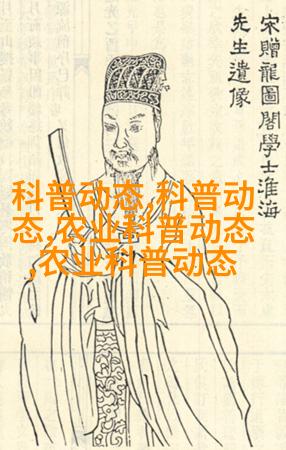 宋贈龍圖閣學士淮海
先生遺像
科普动态,科普动
态,农业科普动态
,农业科普动态